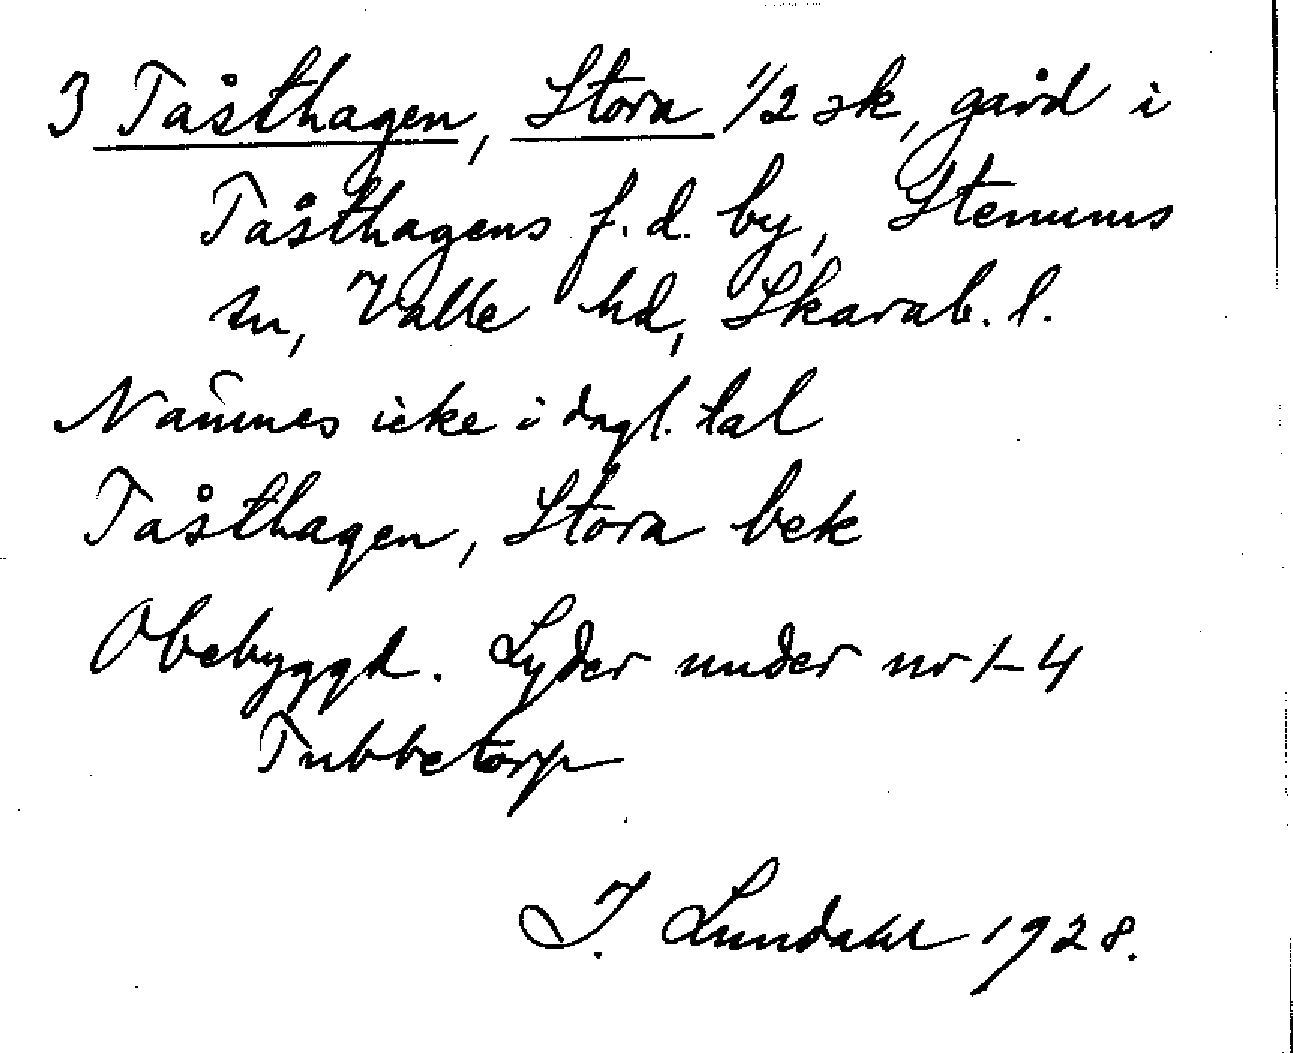 3 Tåsthagen, Stora 1/2 sk, gård i
Tåsthagens f.d. by, Stenums
sn, Valle hd, Skarab. l.
Nämnes icke i dagl. tal
Tåsthagen, Stora bek
Obebyggd. Lyder under nr 1-4
Tubbetorp
I. Lundahl 1928.